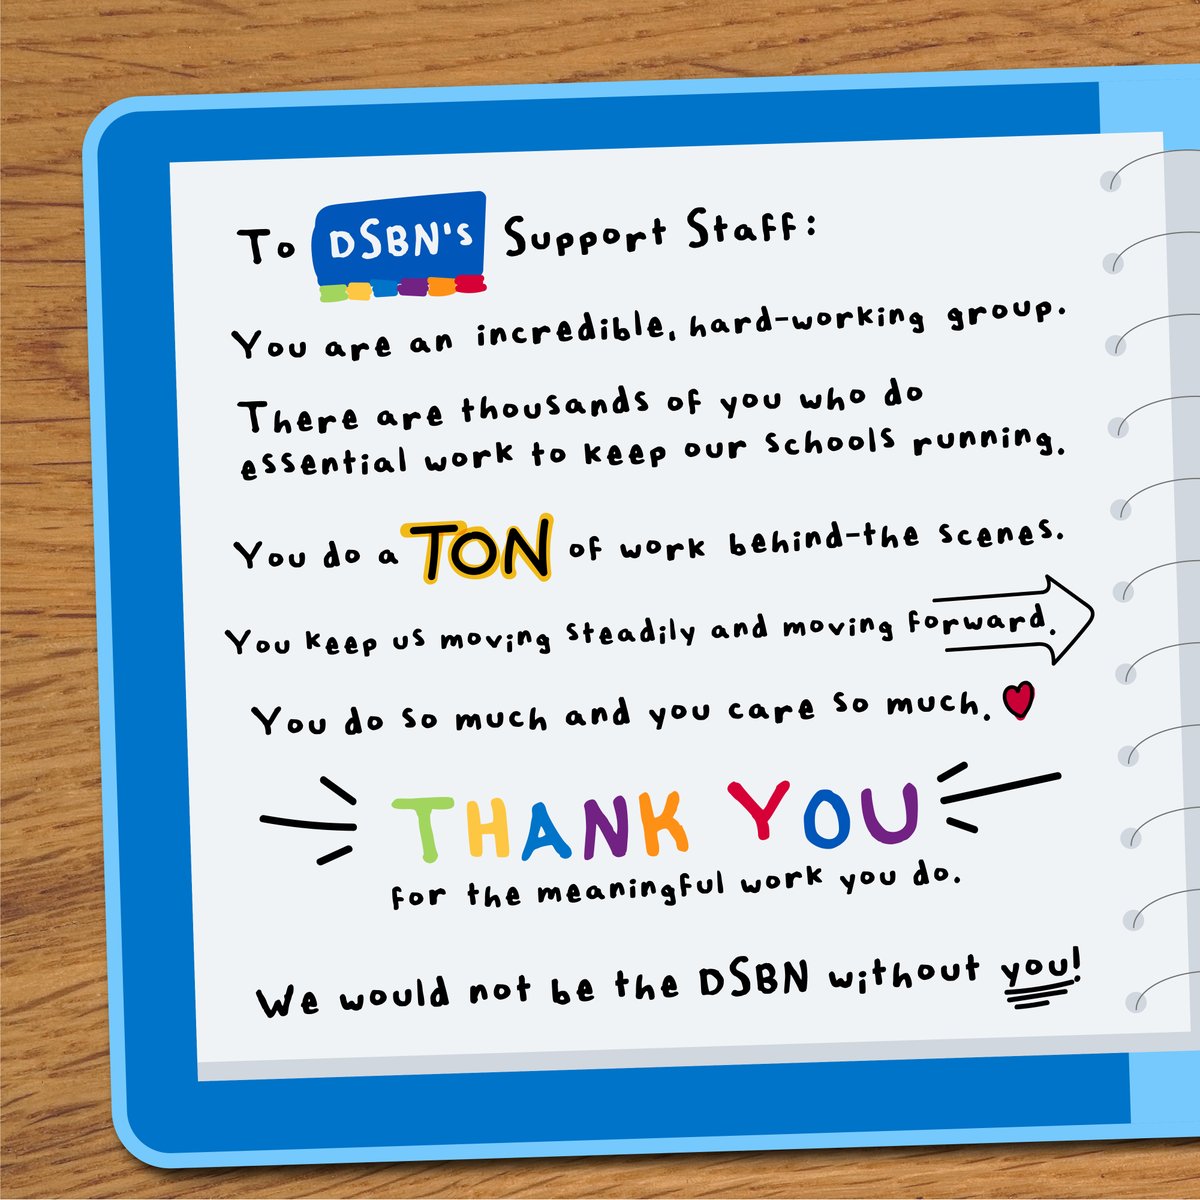 To DSBN's Support Staff:
You are an incredible, hard-working group.
There are thousands of you who do
essential work to keep our schools running.
You do a TON of work behind-the scenes.
You keep us moving steadily and moving forward.
You do so much and you care so much.
THANK YOU
for the meaningful work you do.
We would not be the DSBN without you!